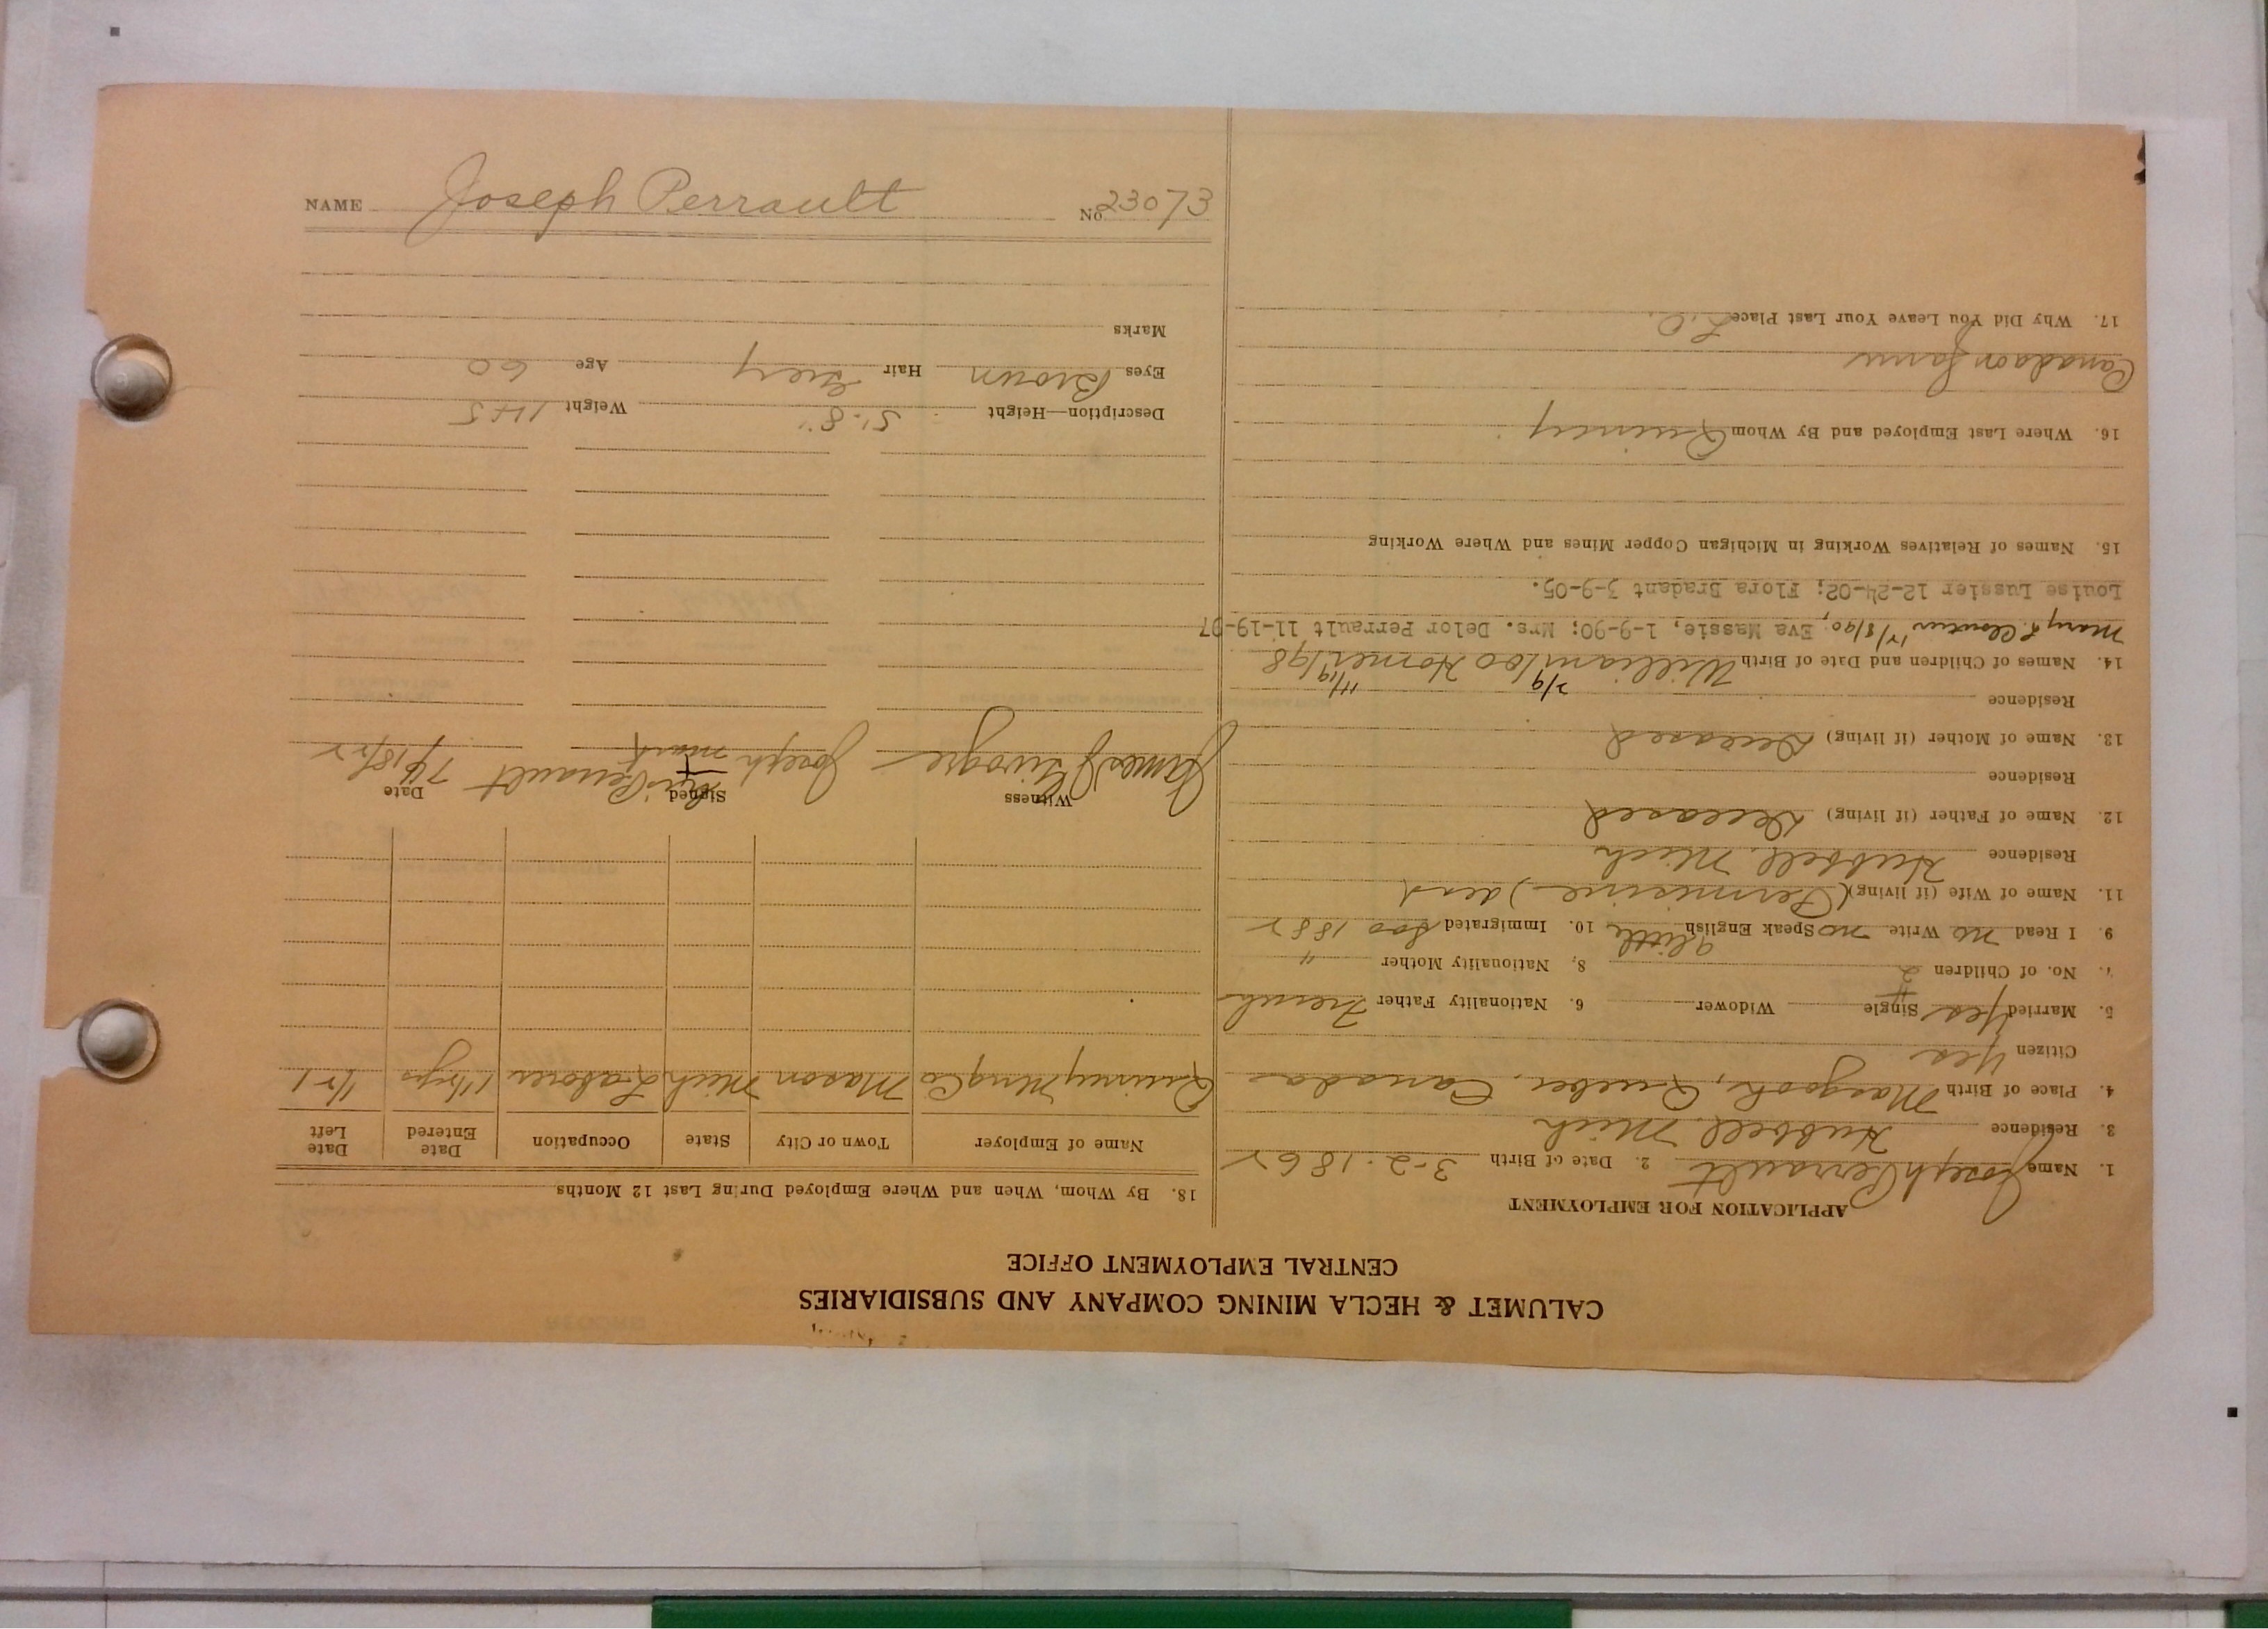 CALUMET & HECLA MINING COMPANY AND SUBSIDIARIES
CENTRAL EMPLOYMENT OFFICE
APPLICATION FOR EMPLOYMENT
1. Name Joseph Perrault 2. Date of Birth 3-2-1862
3. Residence Hubbell Mich
4. Place of Birth Quebec, Canada
Citizen Yes
5. Married Yes Single Widower 6. Nationality Father French
7. No. of Children 8. Nationality Mother "
9. I Read no Write no Speak English a little 10. Immigrated Soo 1882
11. Name of Wife (if living) (Permisine) dead
Residence Hubbell, Mich
12. Name of Father (if living) Deceased
Residence
13. Name of Mother (if living) Deceased
Residence
14. Names of Children and Date of Birth William 2/9/00 Homer 11/19/98
Mary L Cloutier 12/8/90, Eva Massie, 1-9-90; Mrs. Delor Perrault 11-19-97
Louise Lussier 12-24-02; Flora Bradent 3-9-05.
15. Names of Relatives Working in Michigan Copper Mines and Where Working
16. Where Last Employed and By Whom Quincy
Canada on farm
17. Why Did You Leave Your Last Place L.O.
18. By Whom, When and Where Employed During Last 12 Months
Name of Employer Town or City State Occupation Date Entered Date Left
Quincy Mng Co Mason Mich Laborer 1/21
Witness Signed Date
his
James Joseph Perrault
mark
Description—Height 5'-8" Weight 145
Eyes Brown Hair Grey Age 60
Marks
NAME Joseph Perrault No. 23073